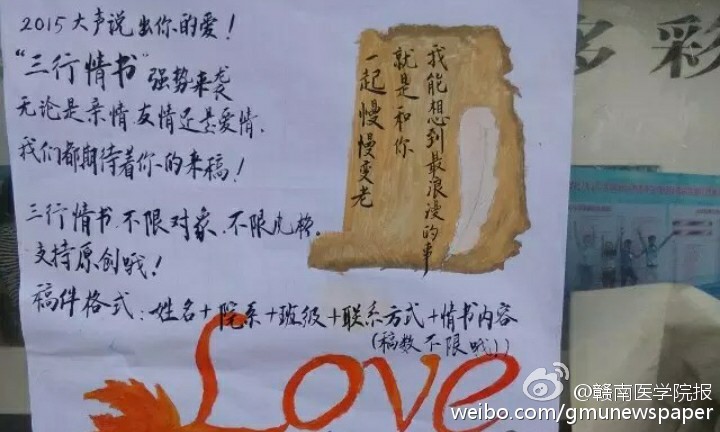 2015大声说出你的爱!
“三行情书”强势来袭
无论是亲情,友情还是爱情,
我们都期待着你的来稿!
三行情书,不限对象,不限风格,
支持原创哦!
稿件格式:姓名+院系+班级+联系方式+情书内容
(稿数不限哦!)
我能想到最浪漫的事
就是和你
一起慢慢变老
Love
多彩
@赣南医学院报
weibo.com/gmunewspaper